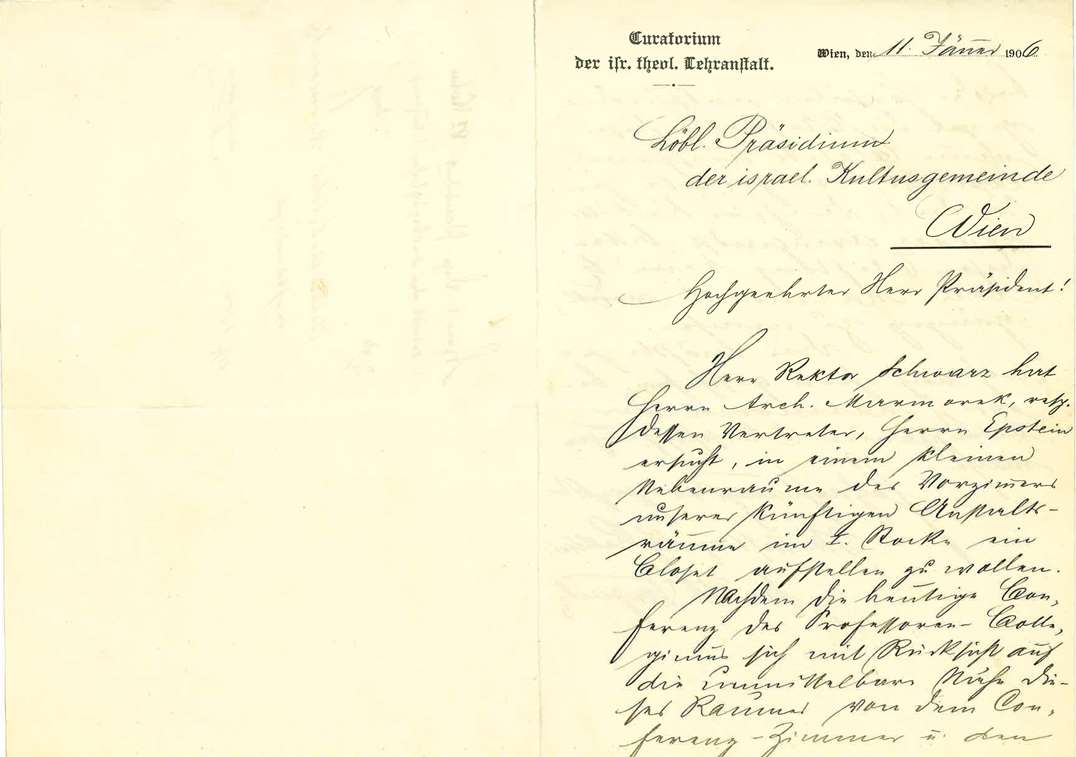 Curatorium
der isr. theol. Lehranstalt.
Wien, den 11. Jänner 1906
Löbl. Präsidium
der israel. Kultusgemeinde
Wien
Hochgeehrter Herr Präsident!
Herr Rektor Schwarz hat
Herrn Arch. Marmorek, resp.
dessen Vertreter, Herrn Epstein
ersucht, in einem kleinen
Nebenraume des Vorzimmers
unserer künftigen Anstalts-
räume im I. Stocke ein
Closet aufstellen zu wollen.
Nachdem die heutige Con-
ferenz des Professoren-Colle-
giums sich mit Rücksicht auf
die unmittelbare Nähe die-
ses Raumes von dem Con-
ferenz-Zimmer u. den